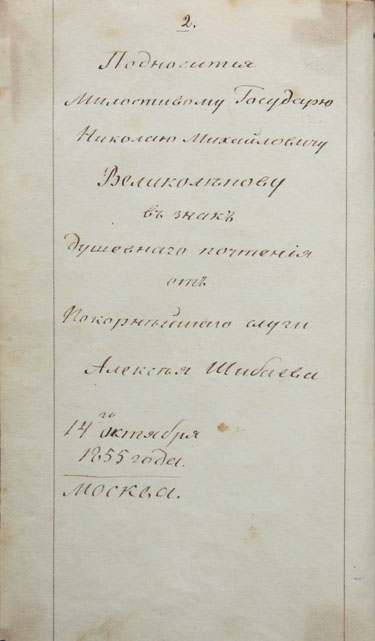 2.
Подносится
Милостивому Государю
Николаю Михайловичу
Великолѣпову
въ знакъ
душевнаго почтенія
отъ
Покорнѣйшаго слуги
Алексѣя Шибаева
14го октября
1855 года.
Москва.